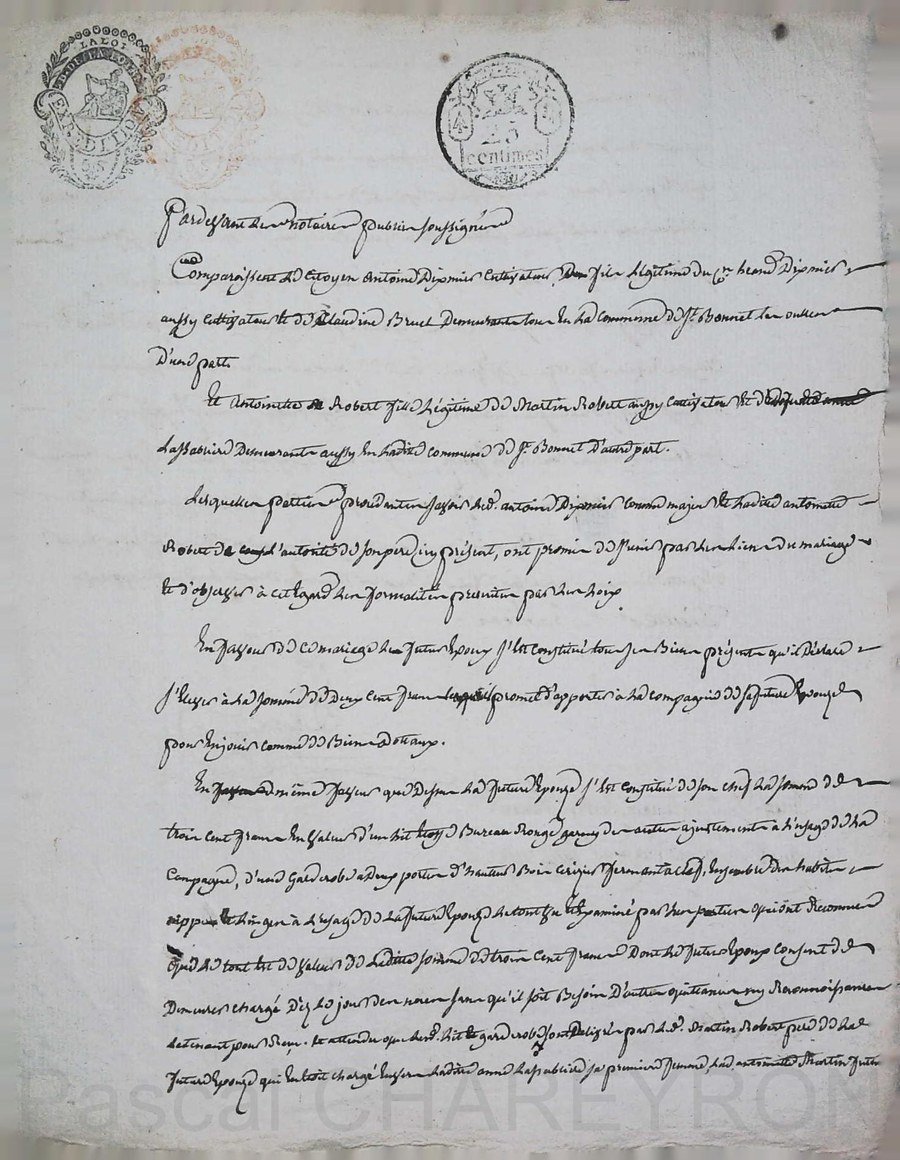 LA LOI
EXPEDITION
25
centimes
Pardevant les notaires publics soussignés
Comparoissent le Citoyen Antoine Dipmier Cultivateur fils légitime du Cn
aussy Cultivateur et de Claudine Bruel Demeurants tous en la commune de St Bonnet
D'une part
Et Antoinette Robert fille légitime de Martin Robert aussy Cultivateur et
Lassabliere Demeurants aussy en ladite commune de St Bonnet D'autre part.
Lesquelles parties procedantes savoir led. antoine Dipmier comme majeur et ladite antoinette
Robert de l'autorité de son père icy présent, ont promis de s'unir par les liens du mariage
et d'observer à cet égard les formalités prescrites par les loix
En faveur de ce mariage le futur Epoux s'est constitué tous ses Biens présents qu'il Déclare
s'élever à la somme de Deux Cent francs promet d'apporter à la compagnie de sa future Epouze
pour en jouir comme de Biens dotaux.
En même faveur que Dessus la future Epouze s'est constitué de son chef la somme de
trois Cent francs En valeur d'un lit Bureau Rouge garny de ses autres ajustements à l'usage de la
Campagne, d'une garderobe à Deux portes d'hauteur Bois cerizier fermant à clef, Ensemble des habits
nippes et linges à l'usage de la future Epouze le tout vu et Examiné par les parties qui ont Reconnu
que le tout est de valeur de ladite somme de trois Cent francs Dont le futur Epoux consent de
Demeurer chargé Dèz le jour des noces sans qu'il soit Besoin D'autre quittance ny Reconnoissance
le tenant pour Reçu. Et attendu que led. lit et garderobe sont Delivrés par led. Martin Robert père de la
future Epouze qui En étoit chargé Envers ladite anne Lassabliere sa première femme, lad. antoinette Martin future
Pascal CHAREYRON